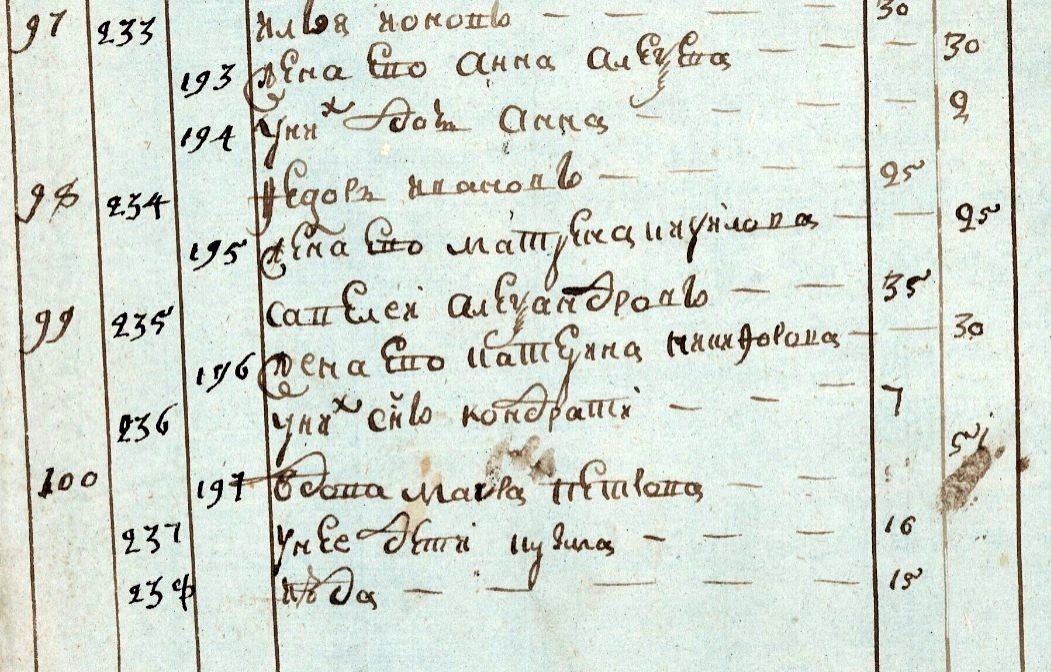 97 233 илья кононовъ 30
193 жена ево анна алексѣева 30
194 у них дочь анна 9
98 234 ѳедоръ ивановъ 25
195 жена ево матрена 25
99 235 савелеи александровъ 35
196 жена ево катерина никиѳорова 30
236 у них сынъ кондратеи 7
100 197 вдова мавра петрова 51
237 у нее дети кузма 16
238 15